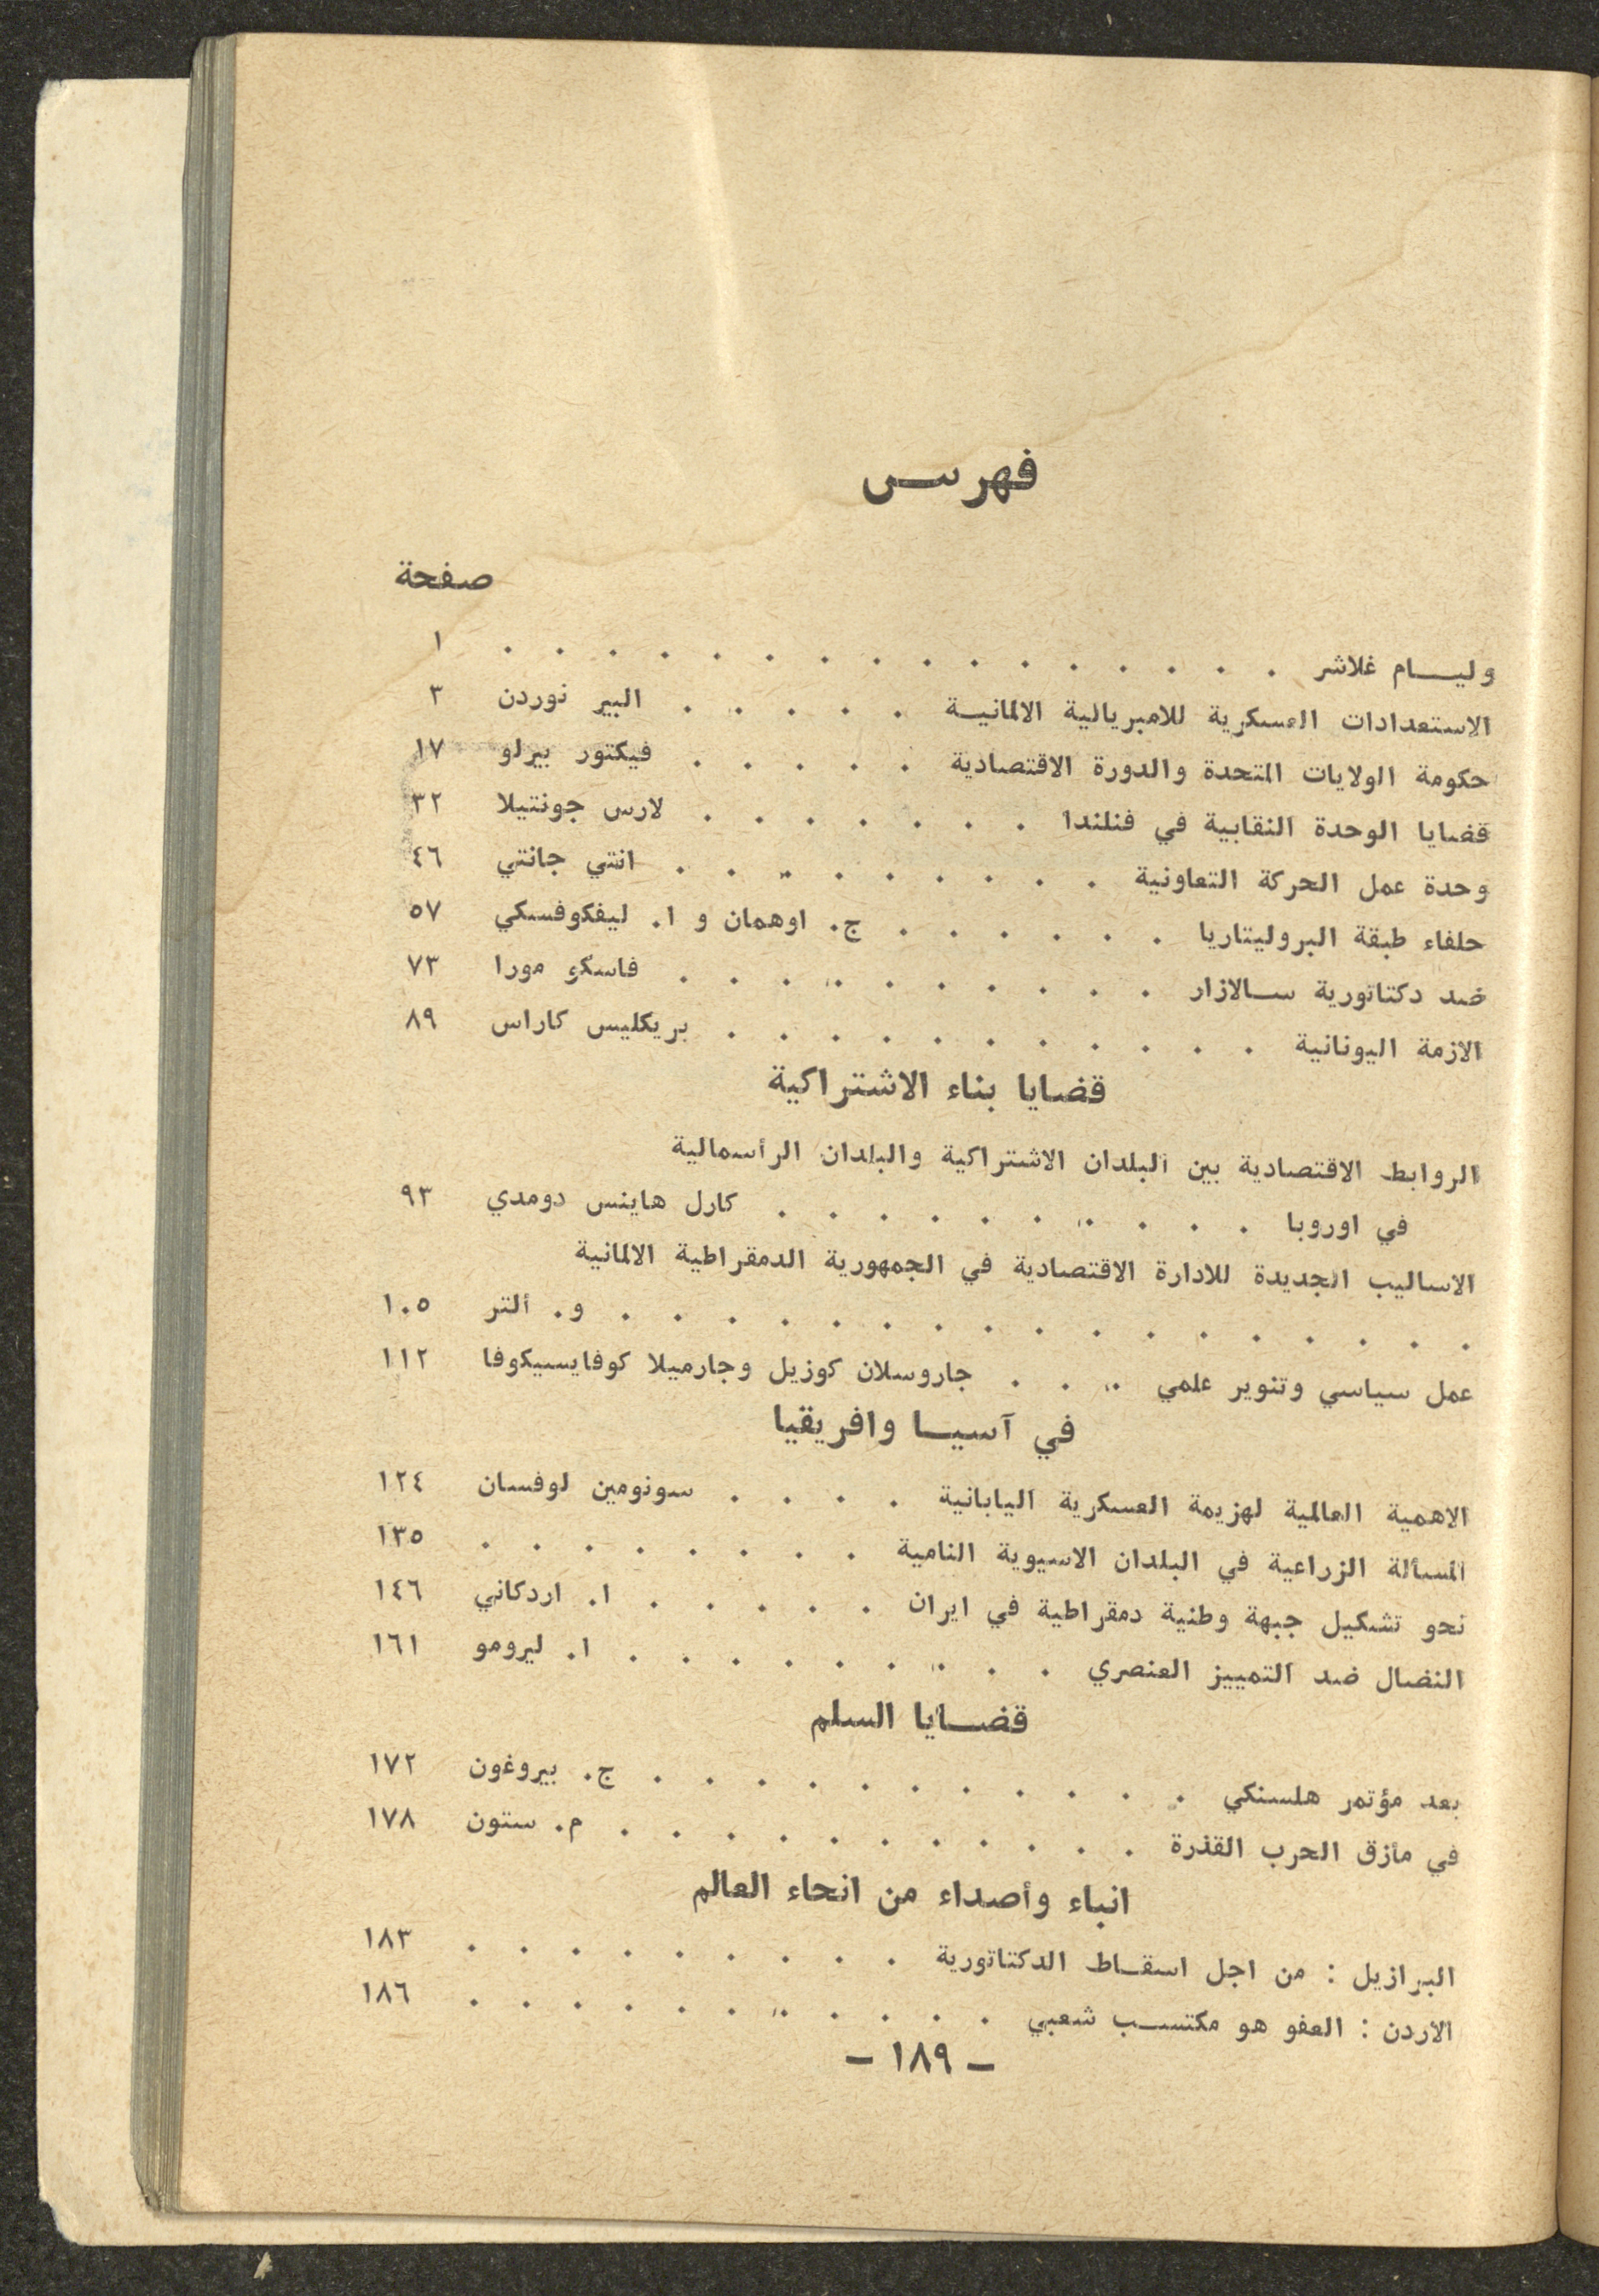 فهرس
صفحة
وليام غلاشر . . . . . . . . . . . . . . . . ١
الاستعدادات العسكرية للامبريالية الالمانية . . . . . البير نوردن ٣
حكومة الولايات المتحدة والدورة الاقتصادية . . . . . فيكتور بيرلو ١٧
قضايا الوحدة النقابية في فنلندا . . . . . . . لارس جونتيلا ٣٢
وحدة عمل الحركة التعاونية . . . . . . . . . انتي جانتي ٤٦
حلفاء طبقة البروليتاريا . . . . . . ج. اوهمان و ا. ليفكوفسكي ٥٧
ضد دكتاتورية سالازار . . . . . . . . . . فاسكو مورا ٧٣
الازمة اليونانية . . . . . . . . . . . بريكليس كاراس ٨٩
قضايا بناء الاشتراكية
الروابط الاقتصادية بين البلدان الاشتراكية والبلدان الرأسمالية
في اوروبا . . . . . . . . . . كارل هاينس دومدي ٩٣
الاساليب الجديدة للادارة الاقتصادية في الجمهورية الدمقراطية الالمانية
. . . . . . . . . . . . . . . . . و. ألتر ١٠٥
عمل سياسي وتنوير علمي . . . جاروسلان كوزيل وجارميلا كوفايسيكوفا ١١٢
في آسيا وافريقيا
الاهمية العالمية لهزيمة العسكرية اليابانية . . . . سونومين لوفسان ١٢٤
المسألة الزراعية في البلدان الاسيوية النامية . . . . . . . . ١٣٥
نحو تشكيل جبهة وطنية دمقراطية في ايران . . . . . ا. اردكاني ١٤٦
النضال ضد التمييز العنصري . . . . . . . . . ا. ليرومو ١٦١
قضايا السلم
بعد مؤتمر هلسنكي . . . . . . . . . . . ج. بيروغون ١٧٢
في مأزق الحرب القذرة . . . . . . . . . . . م. ستون ١٧٨
انباء وأصداء من انحاء العالم
البرازيل : من اجل اسقاط الدكتاتورية . . . . . . . . . ١٨٣
الاردن : العفو هو مكتسب شعبي . . . . . . . . . . . ١٨٦
– ١٨٩ –